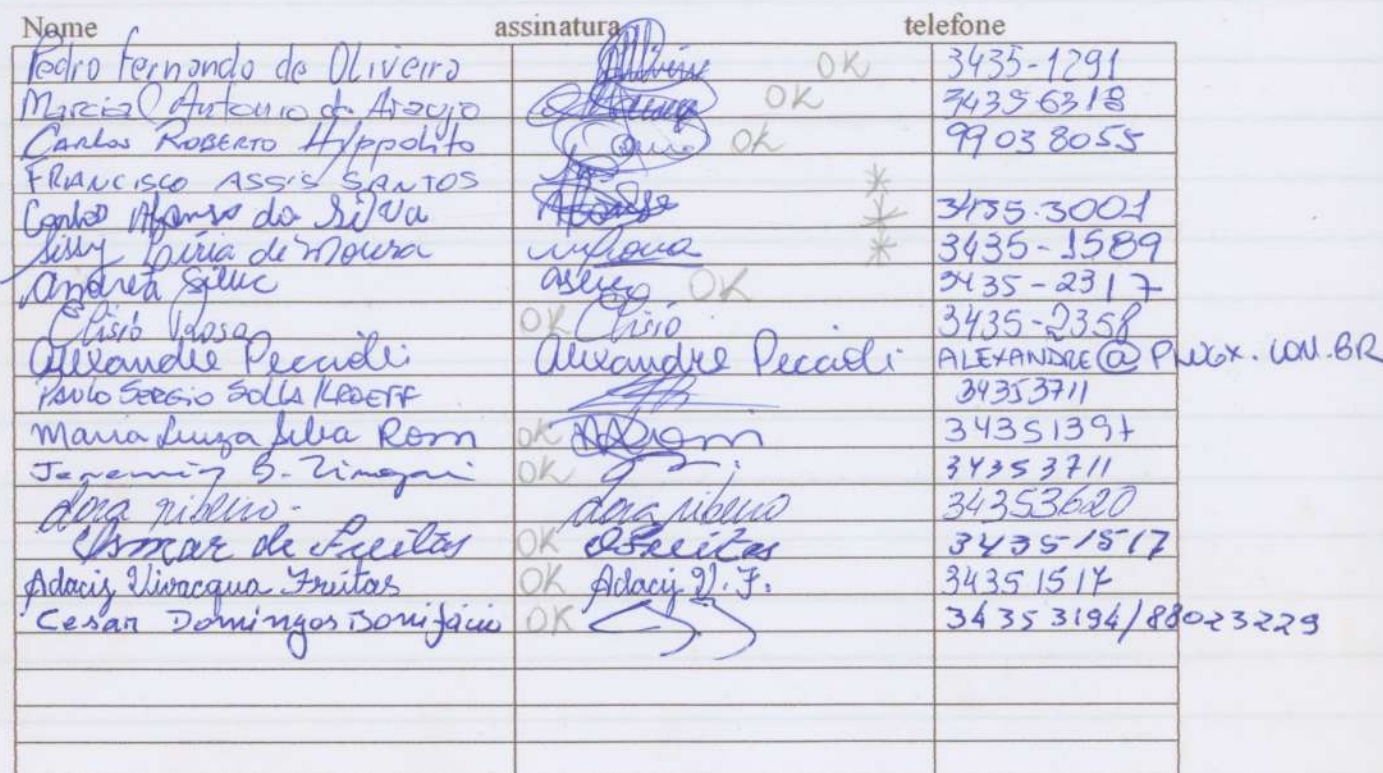 Nome assinatura telefone
Pedro Fernando de Oliveira OK 3435-1291
Marcial Antonio de Araujo OK 34356318
Carlos ROBERTO Hyppolito OK 99038055
FRANCISCO ASSIS SANTOS *
Carlos Afonso da Silva * 3435.3001
Sissy de Moura * 3435-1589
Andreia OK 3435-2317
Elisio Rosa OK Elisio 3435-2358
Alexandre Peccioli Alexandre Peccioli ALEXANDRE@
PAULO SERGIO SOLLA KROEFF 34353711
Maria Luiza Silva Rom OK 34351397
OK 34353711
dora ribeiro- dora ribeiro 34353620
Osmar de Freitas OK OFreitas 34351517
Adacij Vivacqua Freitas OK Adacij V. F. 34351517
Cesar Domingos Bonifácio OK 34353194/88023229